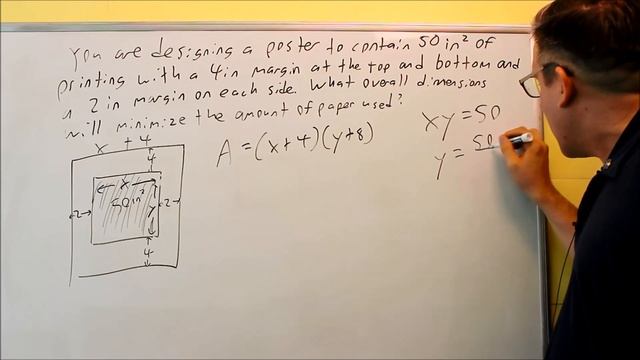 You are designing a poster to contain 50 in² of
printing with a 4 in margin at the top and bottom and
a 2 in margin on each side. What overall dimensions
will minimize the amount of paper used?
A = (x+4)(y+8)
xy = 50
y = 50
x + 4
4
x
50 in²
2
y
2
4